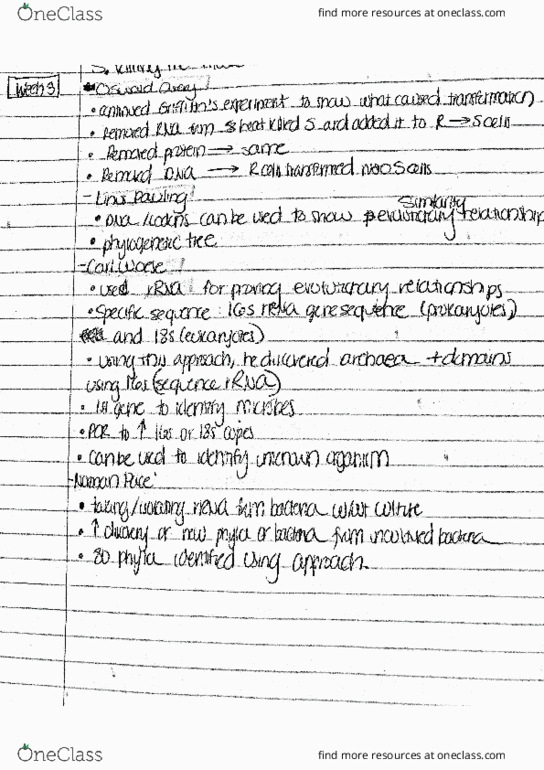 OneClass
find more resources at oneclass.com
Week 3
Oswald Avery
• continued Griffith's experiment to show what caused transformation
• Removed RNA from S heat killed S and added it to R → S cells
• Removed protein → same
• Removed DNA → R cells transformed S cells
- Linus Pauling!
Similarity
• DNA / codons can be used to show evolutionary relationship
• phylogenetic tree
- Carl Woese!
• used rRNA for proving evolutionary relationships
• Specific sequence: 16s rRNA gene sequence (prokaryotes)
and 18s (eukaryotes)
• using this approach, he discovered archaea + domains
using 16s (sequence rRNA)
• 1st gene to identify microbes
• PCR to ↑ 16s or 18s copies
• can be used to identify unknown organism
- Norman Pace:
• taking/isolating rRNA from bacteria without culture
• ↑ discovery of new phyla of bacteria from uncultured bacteria
• 80 phyla identified using approach.
OneClass
find more resources at oneclass.com